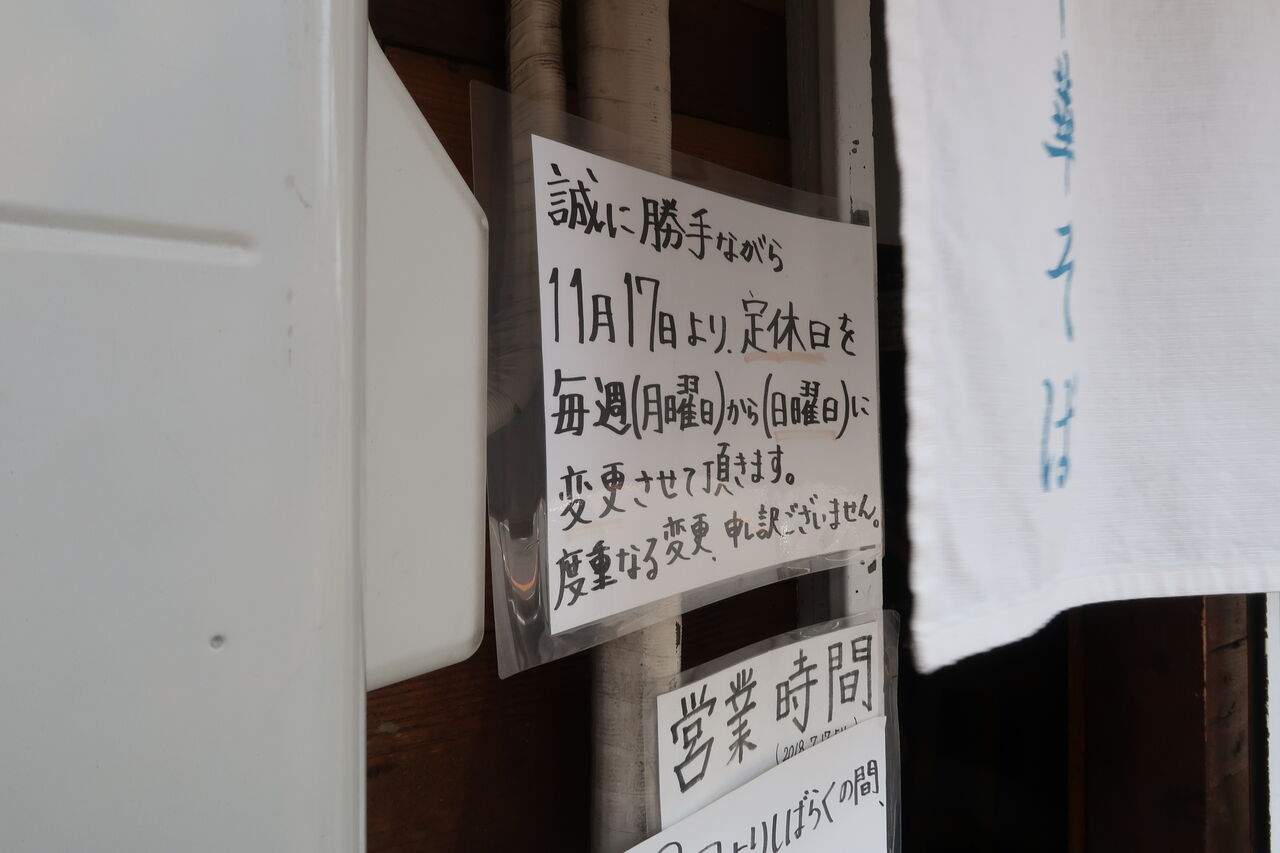 誠に勝手ながら
11月17日より、定休日を
毎週(月曜日)から(日曜日)に
変更させて頂きます。
度重なる変更、申し訳ございません。
営業時間
(2018.7.17より)
よりしばらくの間、
そば